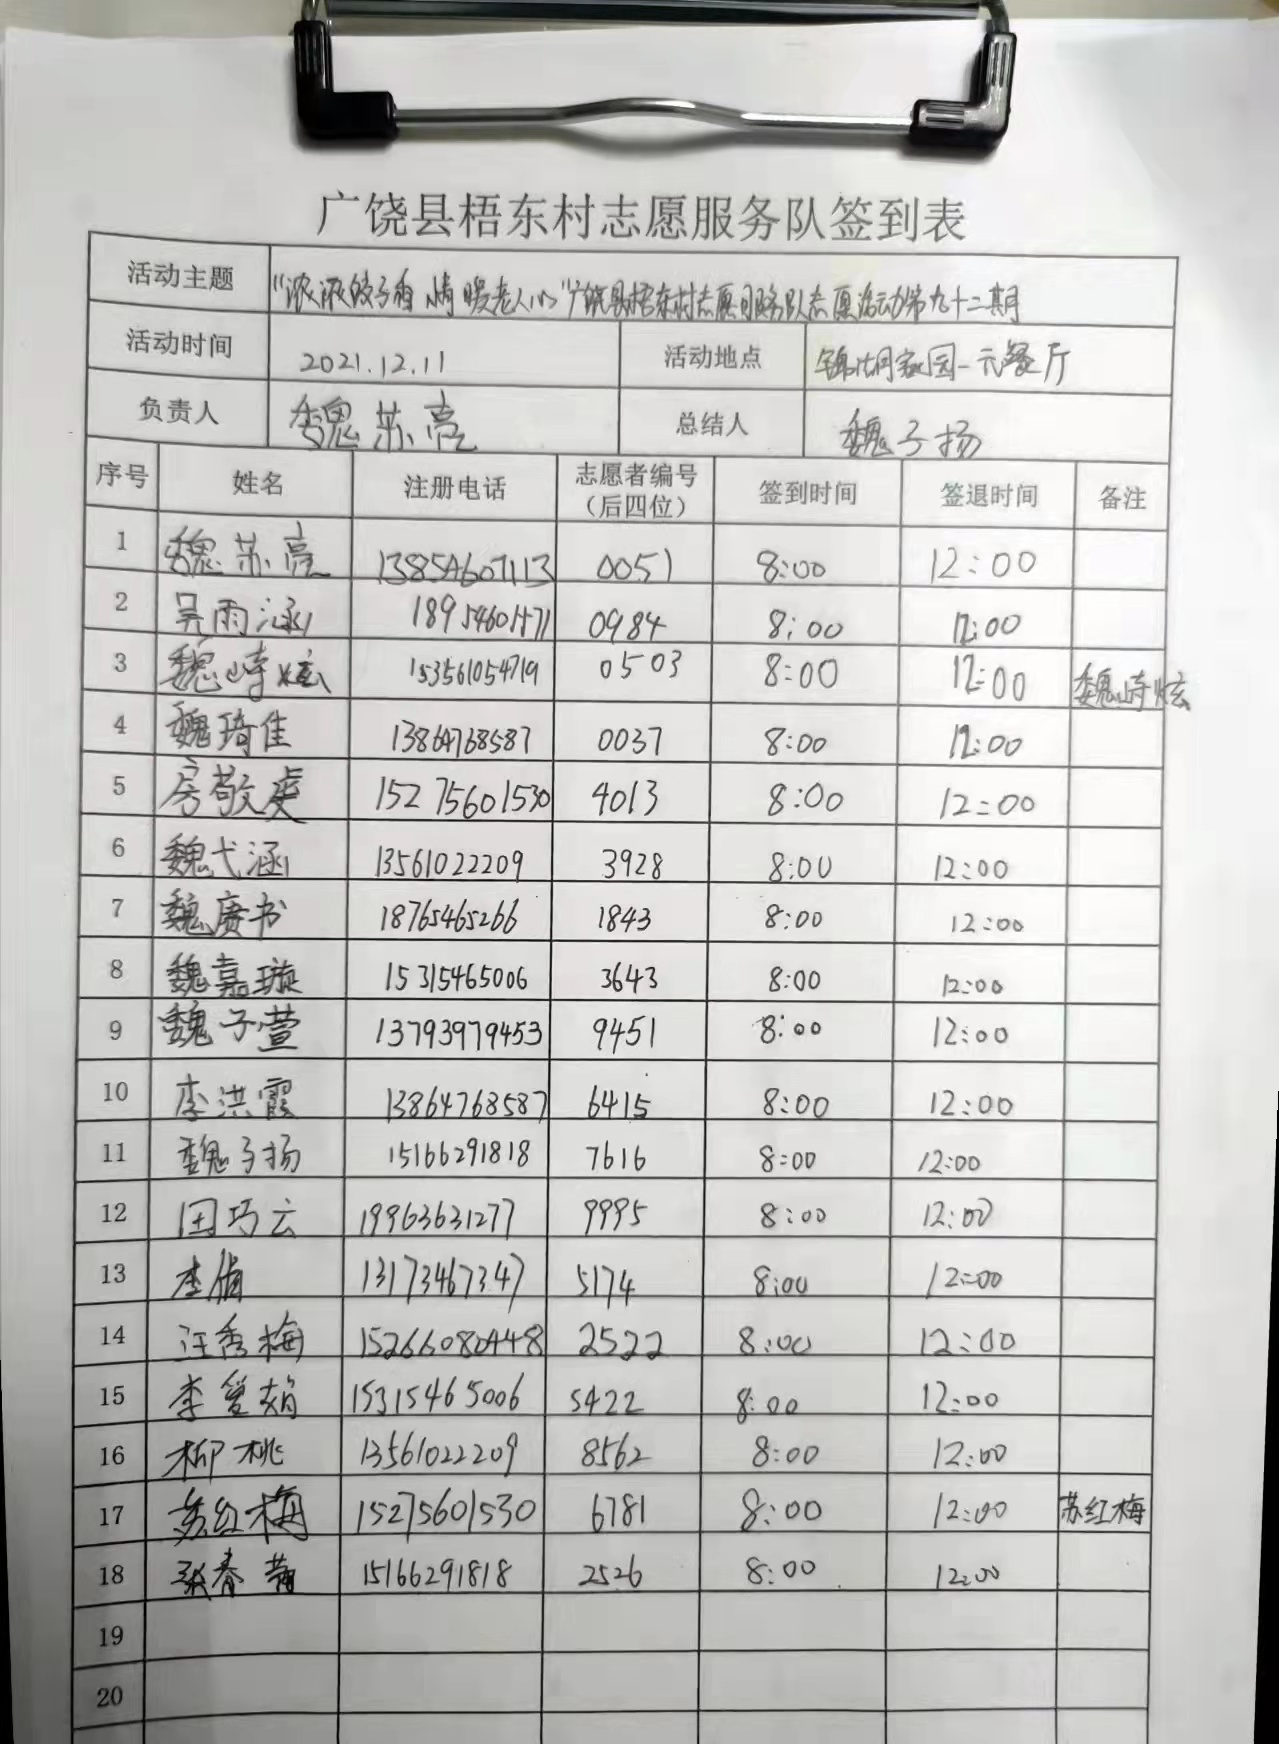 广饶县梧东村志愿服务队签到表
活动主题 "浓浓饺子香 情暖老人心"广饶县梧东村志愿服务队志愿活动第九十二期
活动时间 2021.12.11 活动地点 锦湖家园一元餐厅
负责人 魏苏亮 总结人 魏子扬
序号 姓名 注册电话 志愿者编号（后四位） 签到时间 签退时间 备注
1 魏苏亮 13854607113 0051 8:00 12:00
2 吴雨涵 0984 8:00 12:00
3 魏崎炫 153561054719 0503 8:00 12:00 魏崎炫
4 魏琦佳 13864768587 0037 8:00 12:00
5 房敬虔 15275601530 4013 8:00 12:00
6 魏弋涵 13561022209 3928 8:00 12:00
7 魏赓书 18765465266 1843 8:00 12:00
8 魏嘉璇 15315465006 3643 8:00 12:00
9 魏子萱 13793979453 9451 8:00 12:00
10 李洪霞 13864768587 6415 8:00 12:00
11 魏子扬 15166291818 7616 8:00 12:00
12 田巧云 19963631277 9995 8:00 12:00
13 李倩 13173467347 5174 8:00 12:00
14 汪秀梅 15266080448 2522 8:00 12:00
15 李爱娟 15315465006 5422 8:00 12:00
16 柳桃 13561022209 8562 8:00 12:00
17 苏红梅 15275601530 6781 8:00 12:00 苏红梅
18 张春 15166291818 2526 8:00 12:00
19
20